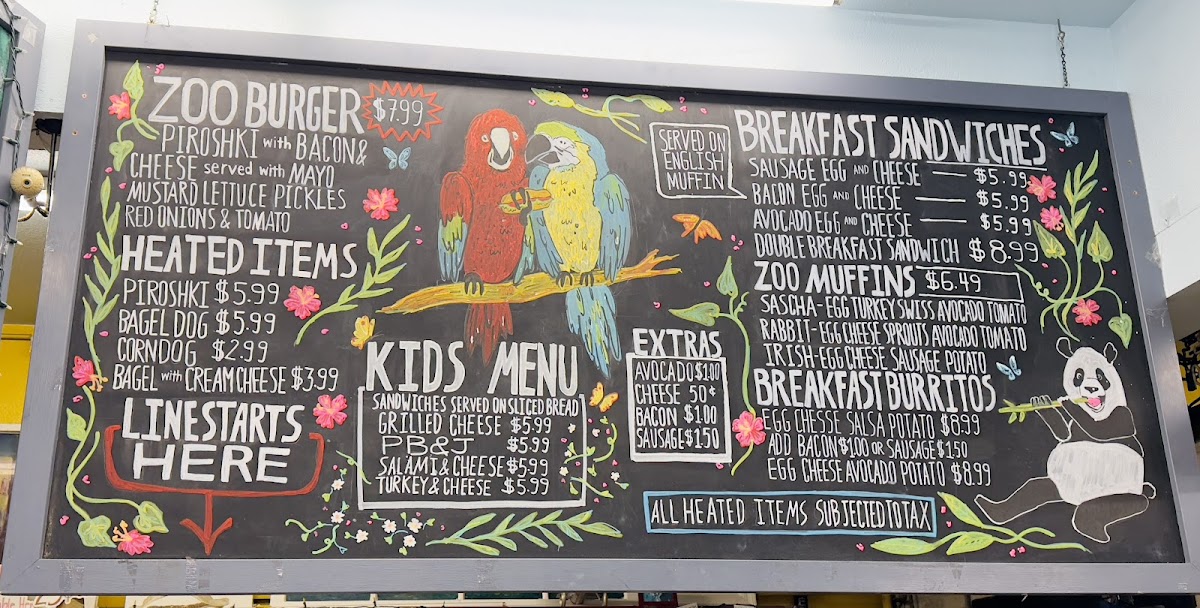 ZOO BURGER $7.99
PIROSHKI with BACON &
CHEESE served with MAYO
MUSTARD LETTUCE PICKLES
RED ONIONS & TOMATO
HEATED ITEMS
PIROSHKI $5.99
BAGEL DOG $5.99
CORNDOG $2.99
BAGEL with CREAM CHEESE $3.99
LINE STARTS
HERE
KIDS MENU
SANDWICHES SERVED ON SLICED BREAD
GRILLED CHEESE $5.99
PB&J $5.99
SALAMI & CHEESE $5.99
TURKEY & CHEESE $5.99
SERVED ON
ENGLISH
MUFFIN
EXTRAS
AVOCADO $1.00
CHEESE 50¢
BACON $1.00
SAUSAGE $1.50
BREAKFAST SANDWICHES
SAUSAGE EGG AND CHEESE — $5.99
BACON EGG AND CHEESE — $5.99
AVOCADO EGG AND CHEESE — $5.99
DOUBLE BREAKFAST SANDWICH $8.99
ZOO MUFFINS $6.49
SASCHA - EGG TURKEY SWISS AVOCADO TOMATO
RABBIT - EGG CHEESE SPROUTS AVOCADO TOMATO
IRISH - EGG CHEESE SAUSAGE POTATO
BREAKFAST BURRITOS
EGG CHESSE SALSA POTATO $8.99
ADD BACON $1.00 OR SAUSAGE $1.50
EGG CHEESE AVOCADO POTATO $8.99
ALL HEATED ITEMS SUBJECTED TO TAX